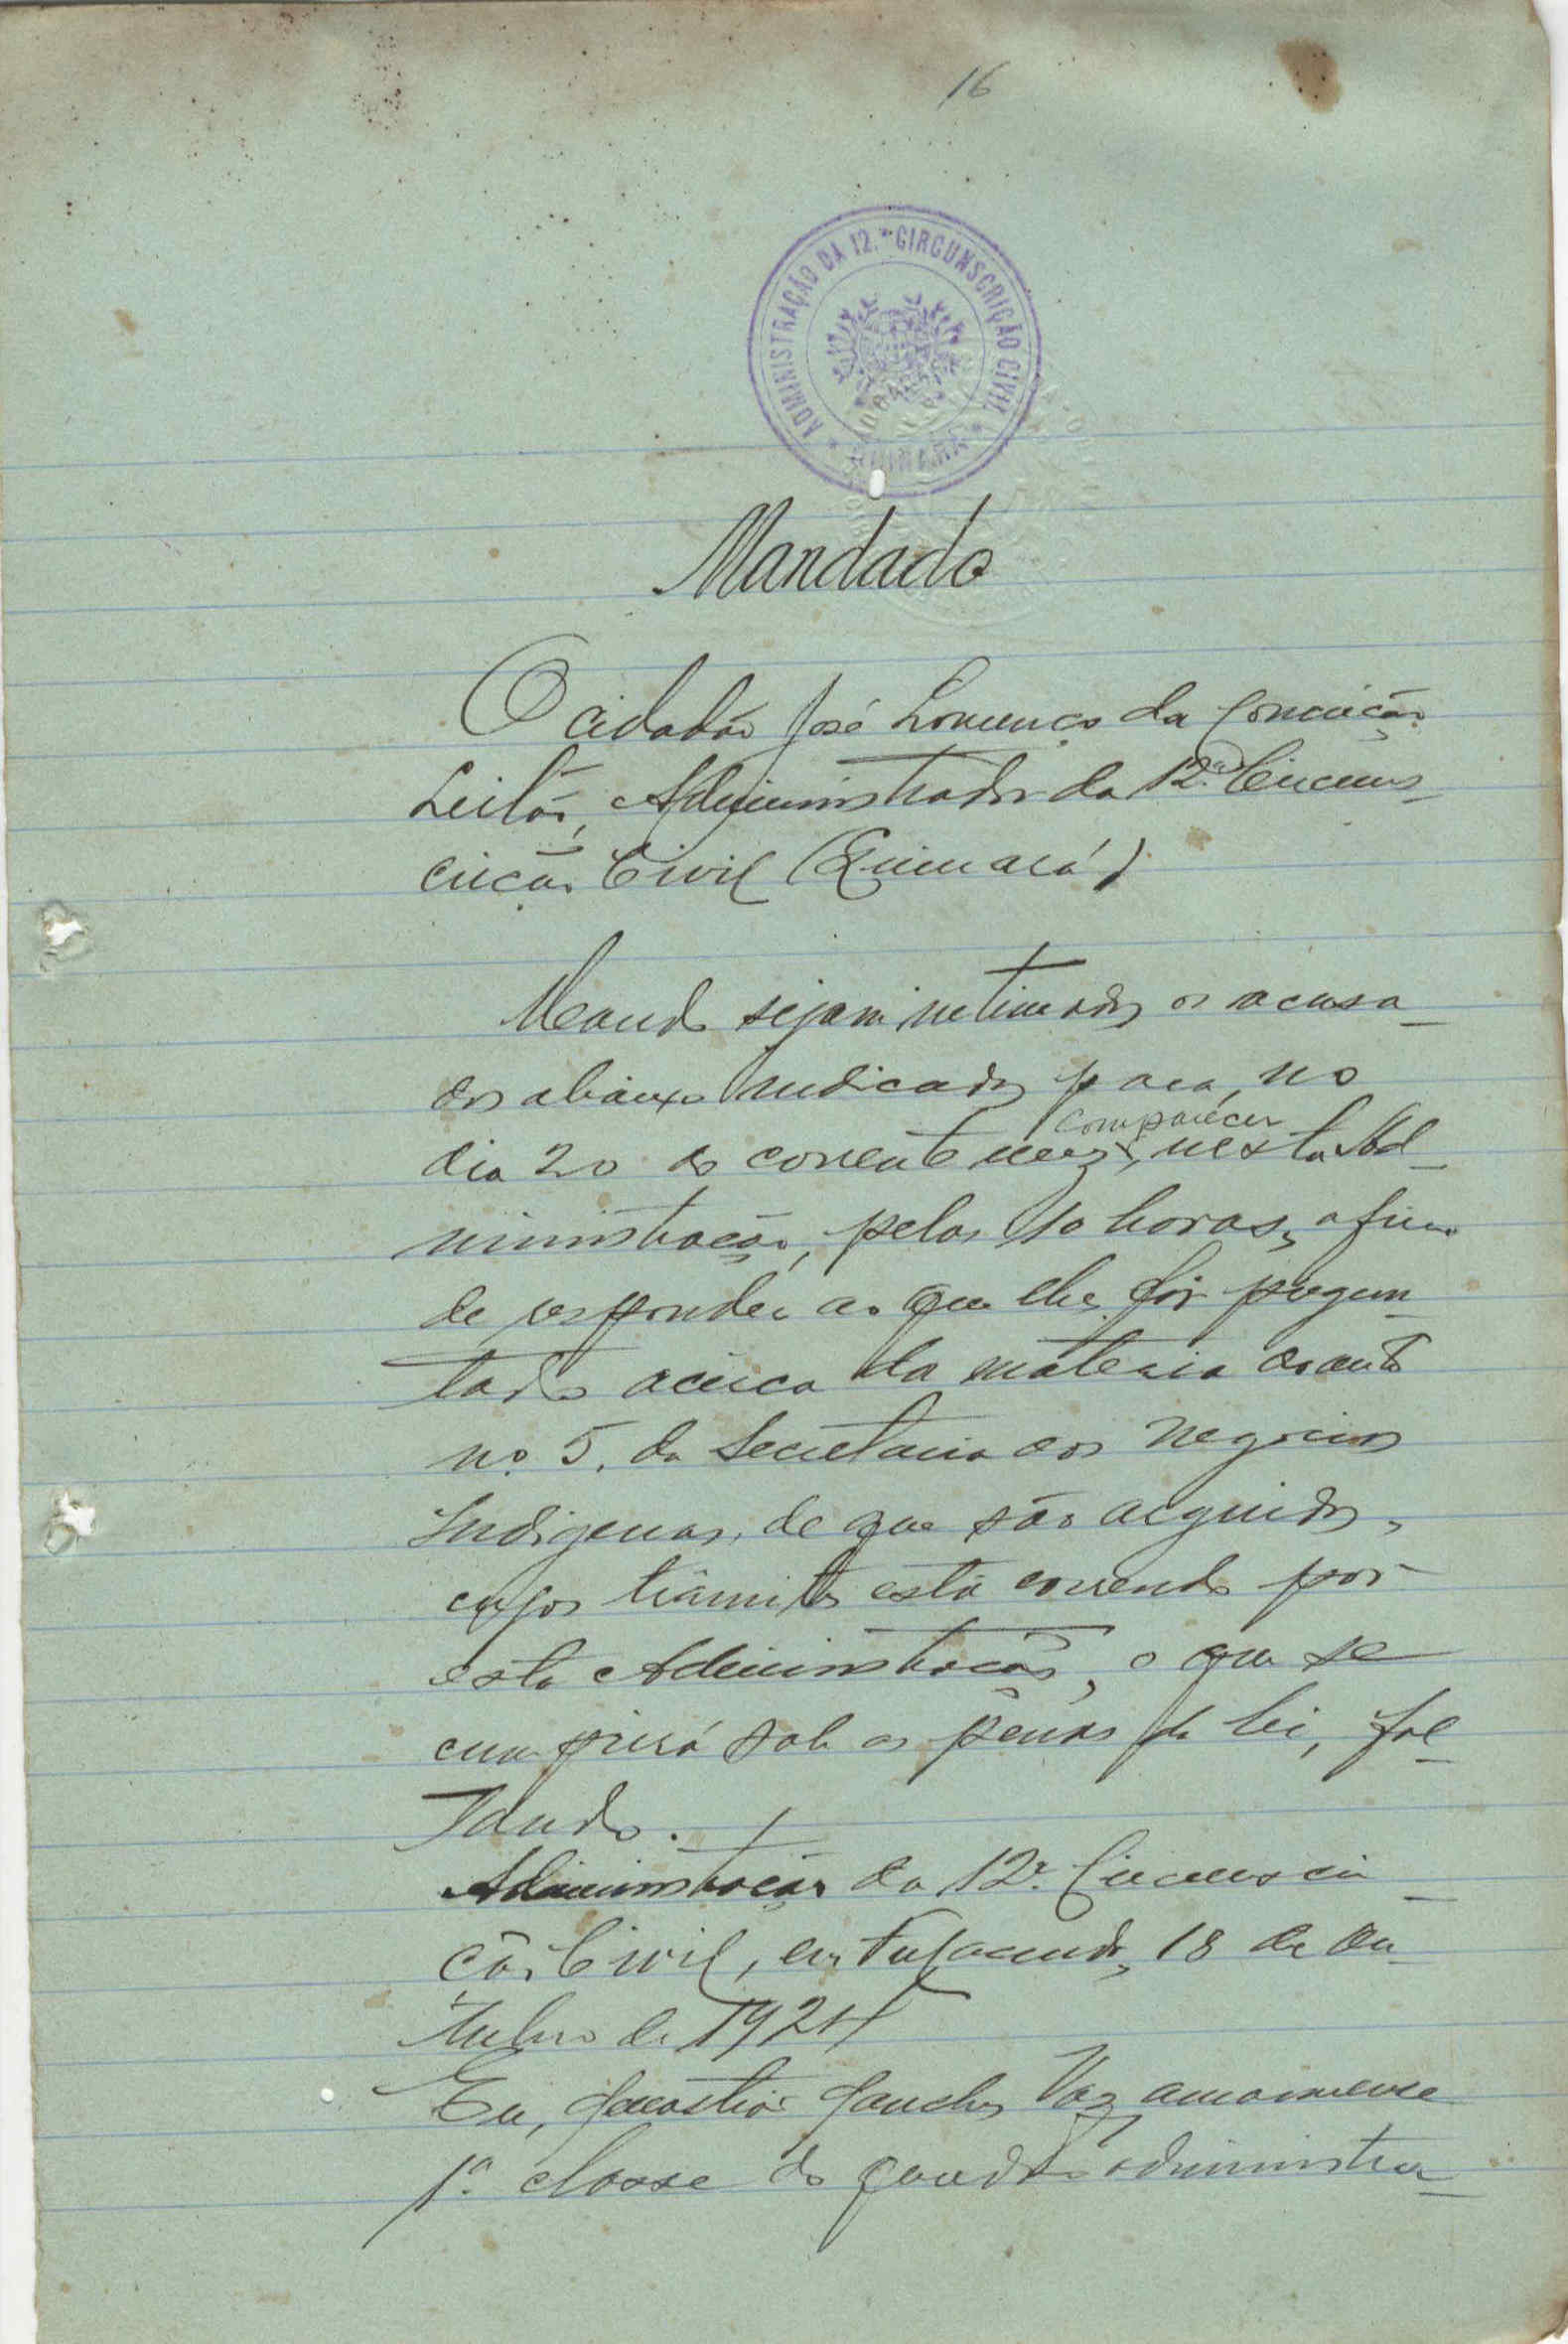 16
ADMINISTRAÇÃO DA 12.ª CIRCUNSCRIÇÃO CIVIL
* QUINARÁ *
Mandado
O cidadão José Lourenço da Conceição
Leitão, Administrador da 12ª Circuns-
crição Civil (Quinará)
Mando sejam intimados os acusa-
dos abaixo indicados para, no
comparecer
dia 20 do corrente mez, nesta Ad-
ministração, pelas 10 horas, afim
de responder ao que lhes fôr pregun-
tado acêrca da materia do auto
nº 5, da Secretaria dos Negocios
Indigenas, de que são arguidos,
cujos trâmites está correndo por
esta Administração, o que se
cumprirá sob as penas da lei, fal-
tando.
Administração da 12ª Circunscri-
ção Civil, em Fulacunda, 18 de Ou-
tubro de 1924
Eu, Sanches Vaz, amanuense
1ª classe do quadro administra-